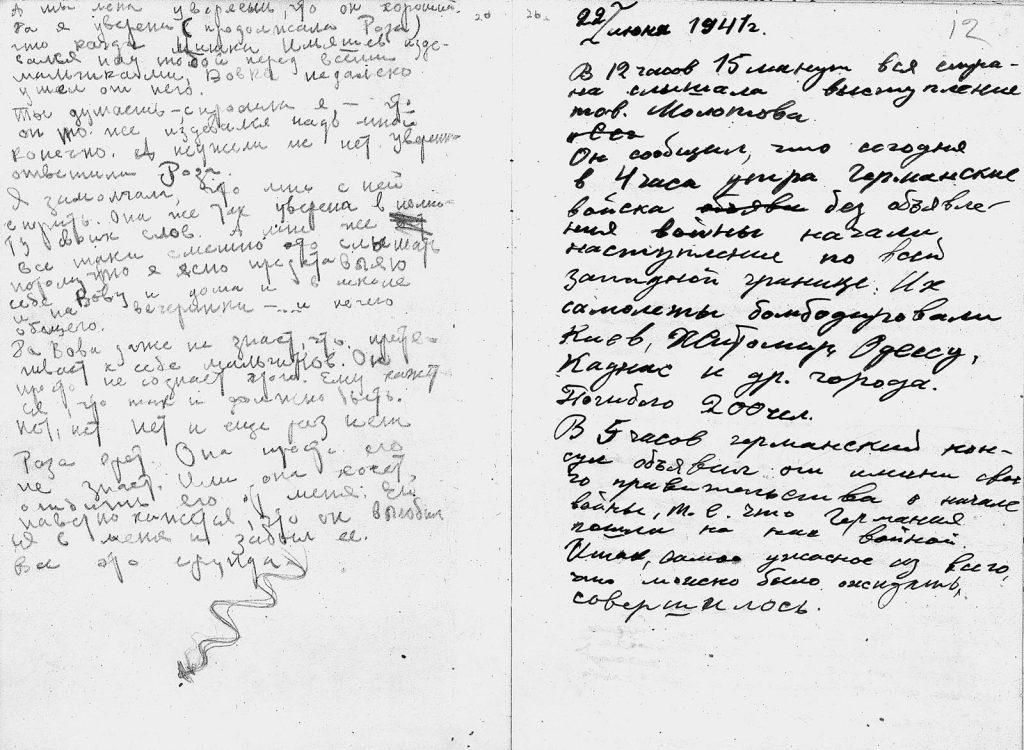 А ты Лена уверяешь, что он хороший.
Да я уверена (продолжала Роза)
что когда Мишка Ильяшев изде-
вался над тобой перед всеми
мальчиками, Вовка недалеко
ушел от него.
Ты думаешь – спросила я –
он то же издевался надо мной
конечно. неужели не нет. уверенно
ответила Роза.
Я замолчала, что мне с ней
спорить. Она же так уверена в
своих слов. А мне же
все таки смешно это слышать
потому что я ясно представляю
себе Вову и дома и в школе
и на вечеринки – и нечего
общего.
Да Вова даже не знает, что притя-
гивает к себе мальчиков. Он
просто не сознает этого. Ему кажет
ся, что так и должно быть.
Нет, нет нет и еще раз нет
Роза врет. Она просто его
не знает. Или она хочет
отбить его от меня. Ей
наверно кажется, что он влюбил
ся в меня и забыл ее.
Все это ерунда.
20
20
22 июня 1941 г.
12
В 12 часов 15 минут вся стра-
на слышала выступление
тов. Молотова.
Он сообщил, что сегодня
в 4 часа утра Германские
войска без объявле-
ния войны начали
наступление по всей
западной границе. Их
самолеты бомбодировали
Киев, Житомир, Одессу,
Каунас и др. города.
Погибло 200 чел.
В 5 часов германский кон-
сул объявил от имени свое
го правительства о начале
войны, т.е. что Германия
пошла на нас войной.
Итак, самое ужасное из всего,
что можно было ожидать,
совершилось.